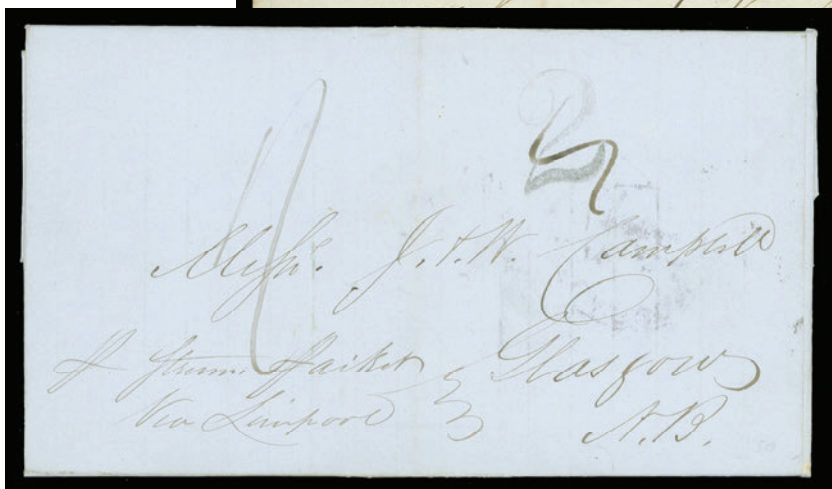 2
Messrs. J. & W. Campbell
Glasgow
N.B.
p Steam Packet
Via Liverpool